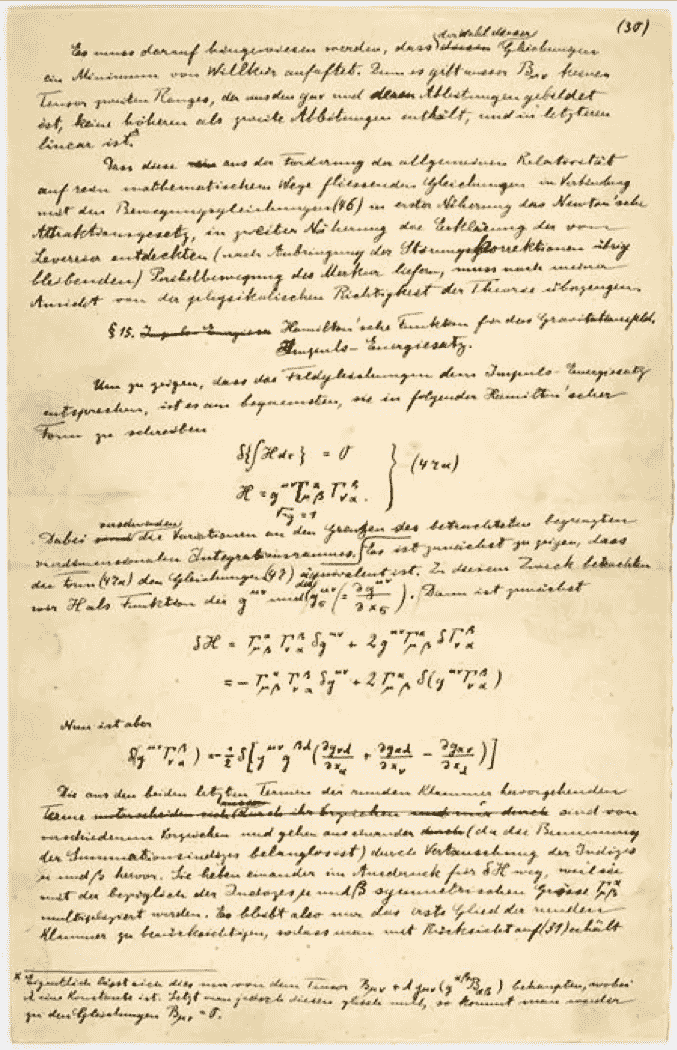 (30)
der Wahl dieser
Es muss darauf hingewiesen werden, dass diesen Gleichungen
ein Minimum von Willkür anhaftet. Denn es gibt ausser Bμν keinen
Tensor zweiten Ranges, der aus den gμν und deren Ableitungen gebildet
ist, keine höheren als zweite Ableitungen enthält, und in letzteren
linear ist.*
Dass diese aus der Forderung der allgemeinen Relativität
auf rein mathematischem Wege fliessenden Gleichungen in Verbindung
mit den Bewegungsgleichungen (46) in erster Näherung das Newton'sche
Attraktionsgesetz, in zweiter Näherung die Erklärung der von
Leverrier entdeckten (nach Anbringung der Störungskorrektionen übrig
bleibenden) Perihelbewegung des Merkur liefern, muss nach meiner
Ansicht von der physikalischen Richtigkeit der Theorie überzeugen.
§ 15. Impuls-Energiesa Hamilton'sche Funktion für das Gravitationsfeld.
Impuls-Energiesatz.
Um zu zeigen, dass das Feldgleichungen dem Impuls-Energiesatz
entsprechen, ist es am bequemsten, sie in folgender Hamilton'scher
Form zu schreiben
δ{∫H dτ} = 0
H = g^{μν} Γ^α_{μβ} Γ^β_{να} } (47a)
√-g = 1
verschwinden
Dabei sind die Variationen an den Grenzen des betrachteten begrenzten
vierdimensionalen Integrationsraumes. Es ist zunächst zu zeigen, dass
die Form (47a) den Gleichungen (47) äquivalent ist. Zu diesem Zweck betrachten
wir H als Funktion der g^{μν} und der g^{μν}_σ (= ∂g^{μν}/∂x_σ). Dann ist zunächst
δH = Γ^α_{μβ} Γ^β_{να} δg^{μν} + 2 g^{μν} Γ^α_{μβ} δΓ^β_{να}
= - Γ^α_{μβ} Γ^β_{να} δg^{μν} + 2 Γ^α_{μβ} δ(g^{μν} Γ^β_{να})
Nun ist aber
δ(g^{μν} Γ^β_{να}) = -½ δ[g^{μν} g^{βλ} (∂g_{νλ}/∂x_α + ∂g_{αλ}/∂x_ν - ∂g_{αν}/∂x_λ)]
Die aus den beiden letzten Termen der runden Klammer hervorgehenden
Terme unterscheiden sich durch ihr Vorzeichen und nur durch sind von
verschiedenem Vorzeichen und gehen auseinander durch (da die Benennung
der Summationsindizes belanglos ist) durch Vertauschung der Indizes
μ und β hervor. Sie heben einander im Ausdruck für δH weg, weil sie
mit der bezüglich der Indizes μ und β symmetrischen Grösse Γ^α_{μβ}
multipliziert werden. Es bleibt also nur das erste Glied der runden
Klammer zu berücksichtigen, sodass man mit Rücksicht auf (31) erhält
* Eigentlich lässt sich dies nur von dem Tensor Bμν + λ gμν (g^{αβ} B_{αβ}) behaupten, wobei
λ eine Konstante ist. Setzt man jedoch diesen gleich null, so kommt man wieder
zu den Gleichungen Bμν = 0.